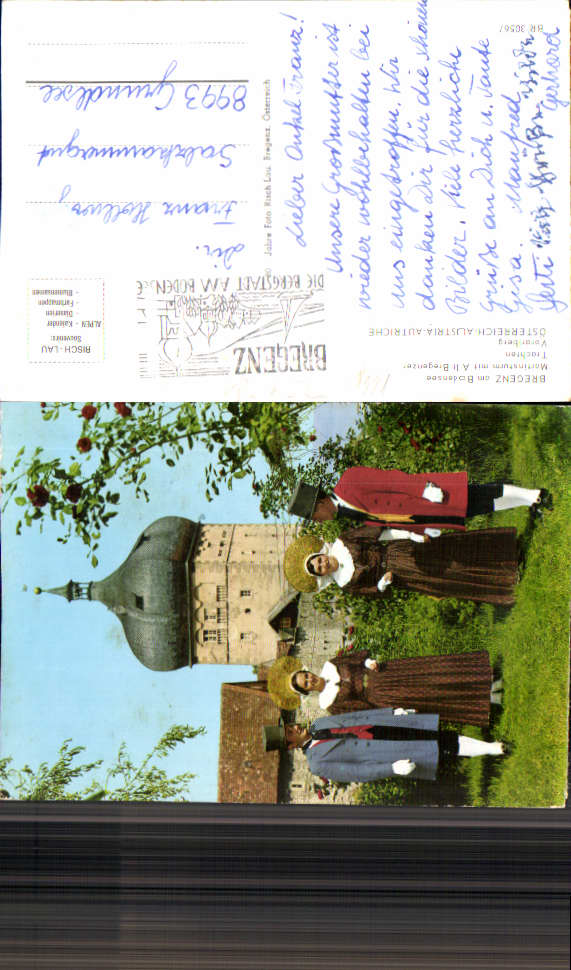 BREGENZ am Bodensee
Martinsturm mit Alt Bregenzer
Trachten
Vorarlberg
ÖSTERREICH-AUSTRIA-AUTRICHE
Lieber Onkel Franz!
Unsere Großmutter ist
wieder wohlbehalten bei
uns eingetroffen. Wir
danken Dir für die schönen
Bilder. Viele herzliche
Grüße an Dich u. Tante
Gisa. Manfred
Gerti
Gerhard
BR 30567
Jahre Foto Risch Lau, Bregenz, Österreich
BREGENZ
DIE BERGSTADT AM BODENSEE
RISCH-LAU
Souvenirs
ALPEN - Kalender
Diaserien
Farbmappen
Blumenserien
Dir.
Franz
Salzkammergut
8993 Grundlsee